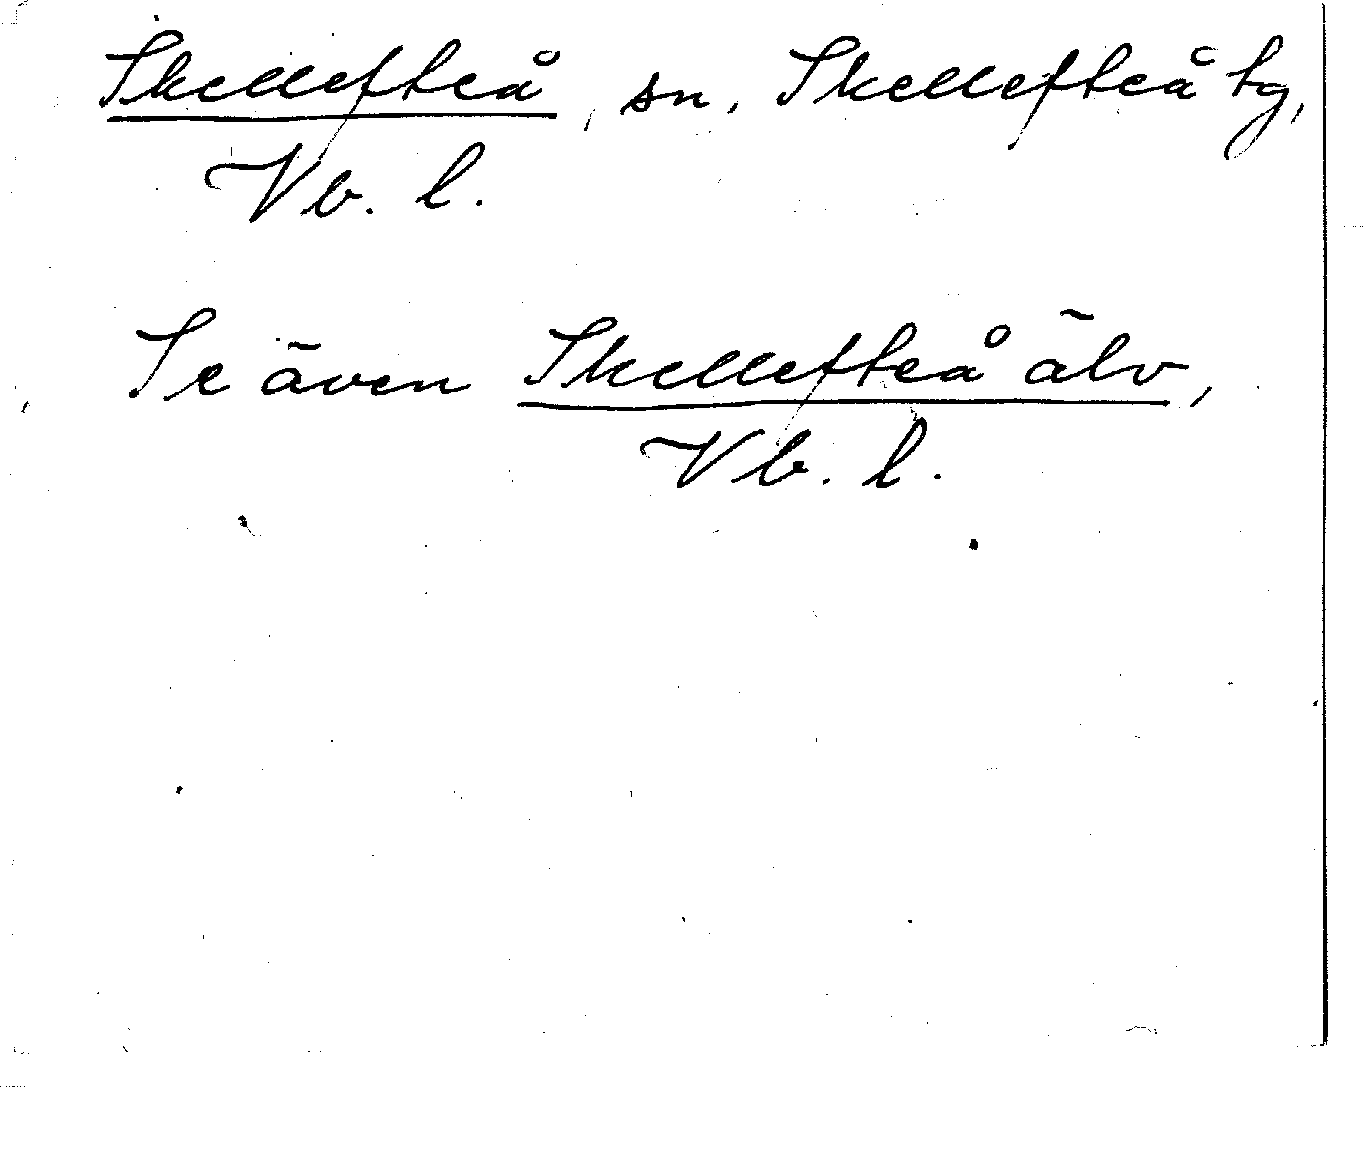 Skellefteå, sn, Skellefteå tg,
Vb. l.
Se även Skellefteå älv,
Vb. l.